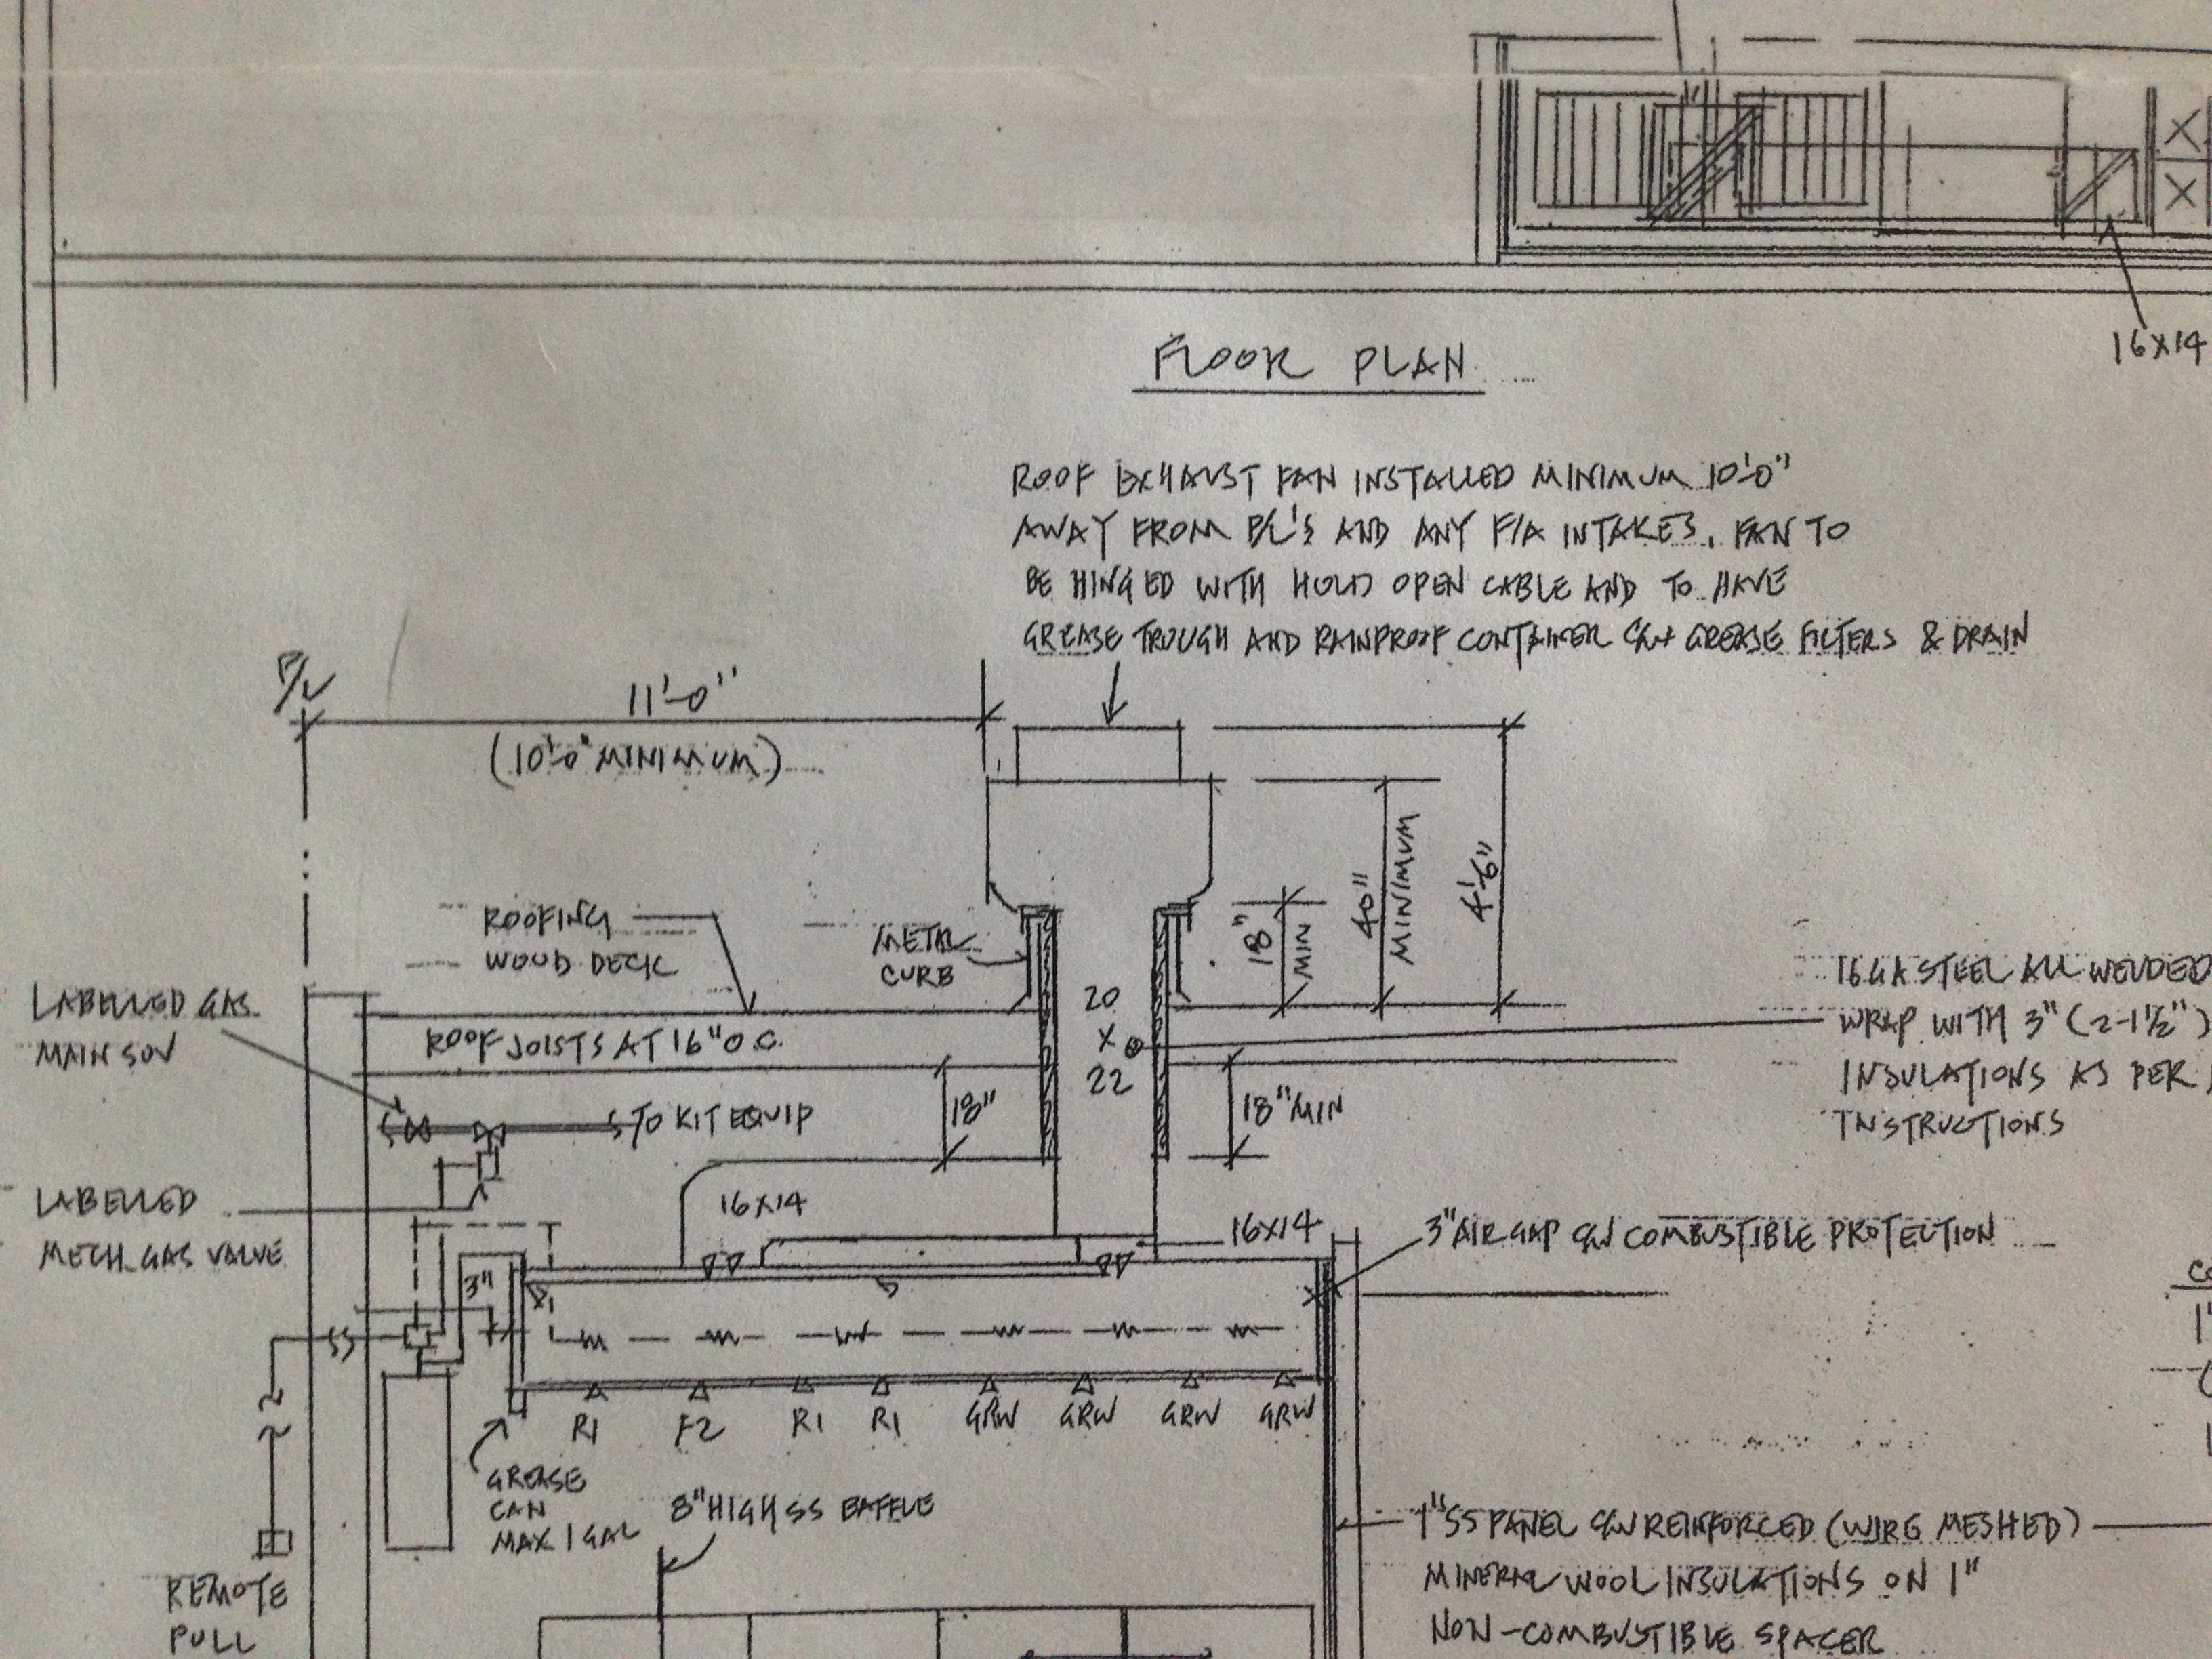 16X14
FLOOR PLAN
ROOF EXHAUST FAN INSTALLED MINIMUM 10'-0"
AWAY FROM P/L'S AND ANY F/A INTAKES. FAN TO
BE HINGED WITH HOLD OPEN CABLE AND TO HAVE
GREASE TROUGH AND RAINPROOF CONTAINER C/W GREASE FILTERS & DRAIN
P/L
11'-0"
(10'-0" MINIMUM)
ROOFING
WOOD DECK
METAL
CURB
18"
MIN
40"
MINIMUM
4'-6"
LABELLED GAS
MAIN SOV
ROOF JOISTS AT 16" O.C.
20
X
22
16 GA STEEL ALL WELDED
WRAP WITH 3" (2-1½")
INSULATIONS AS PER
INSTRUCTIONS
TO KIT EQUIP
18"
18" MIN
LABELLED
MECH. GAS VALVE
16X14
16X14
3" AIR GAP C/W COMBUSTIBLE PROTECTION
3"
R1
F2
R1
R1
GRW
GRW
GRW
GRW
GREASE
CAN
MAX 1 GAL
8" HIGH SS BAFFLE
REMOTE
PULL
1" SS PANEL C/W REINFORCED (WIRE MESHED)
MINERAL WOOL INSULATIONS ON 1"
NON-COMBUSTIBLE SPACER